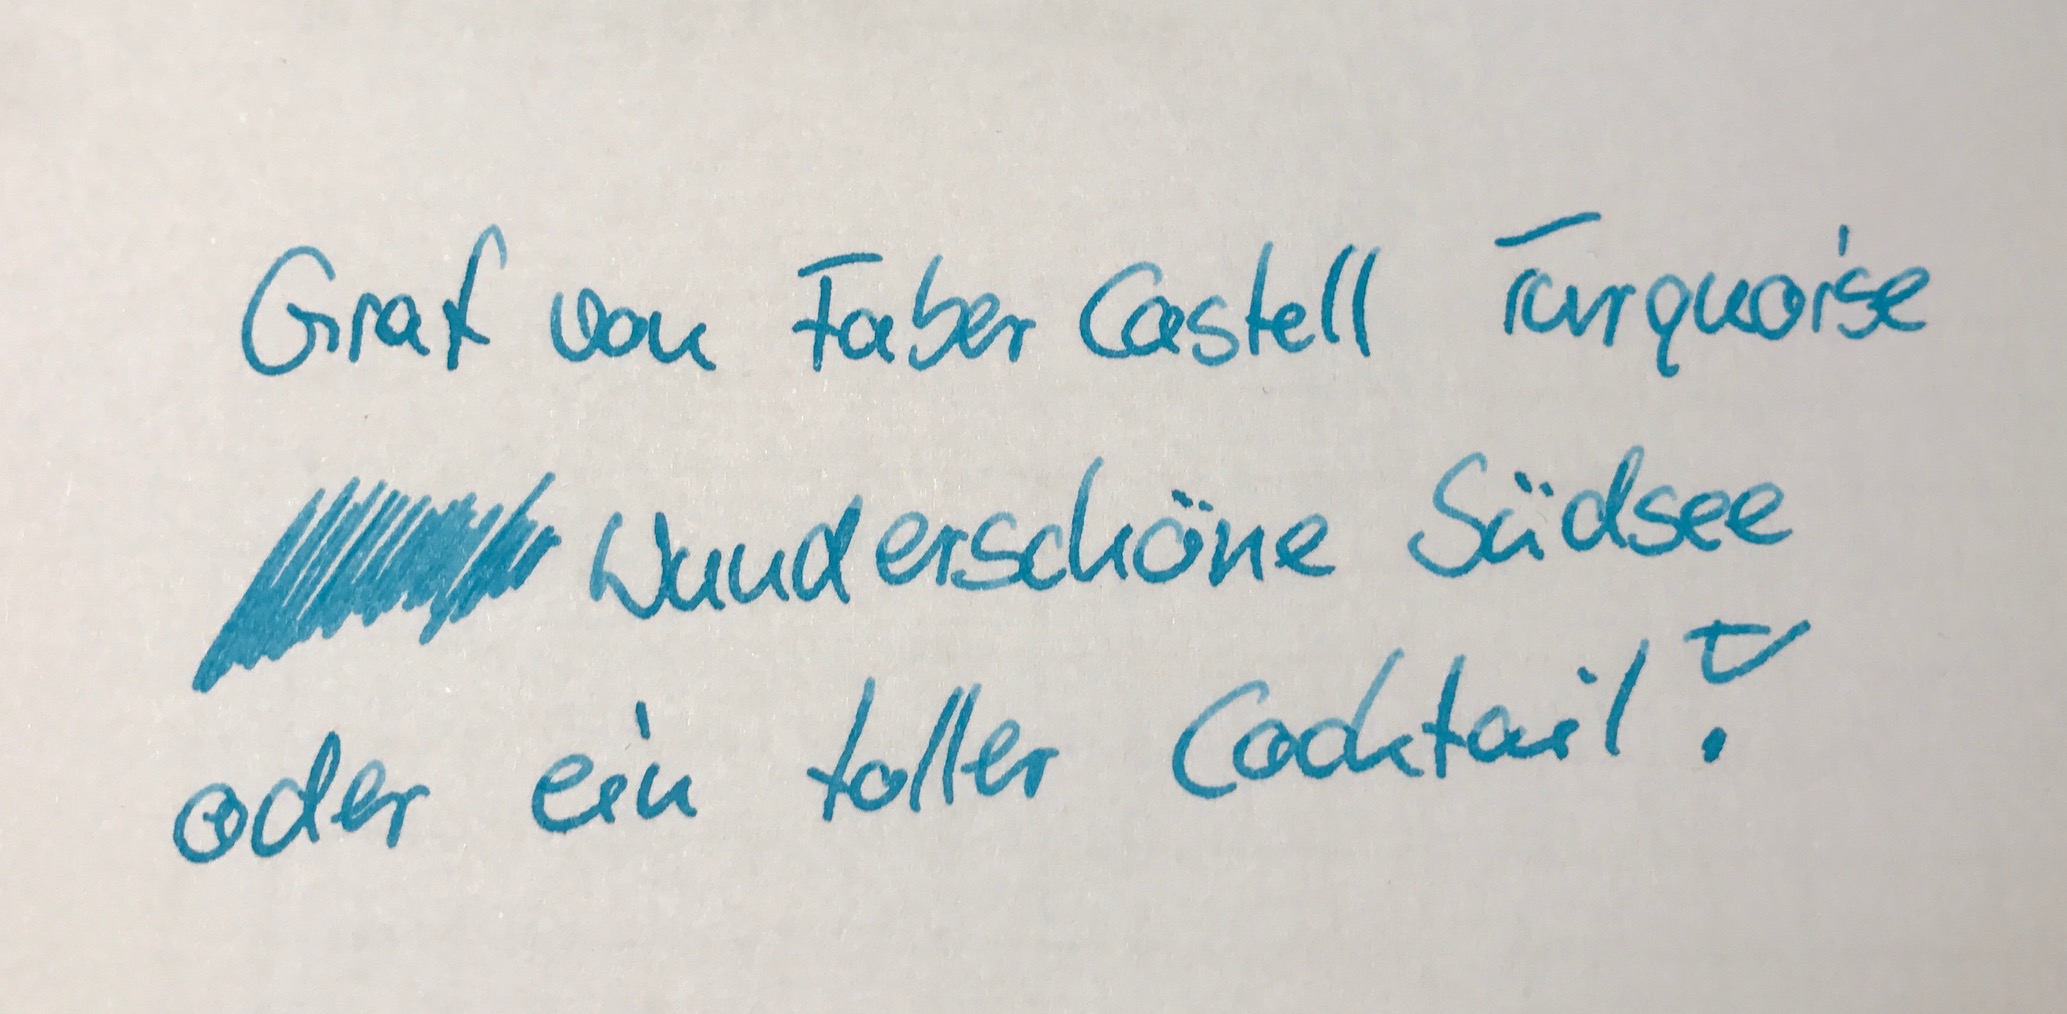 Graf von Faber Castell Turquoise
Wunderschöne Südsee
oder ein toller Cocktail?